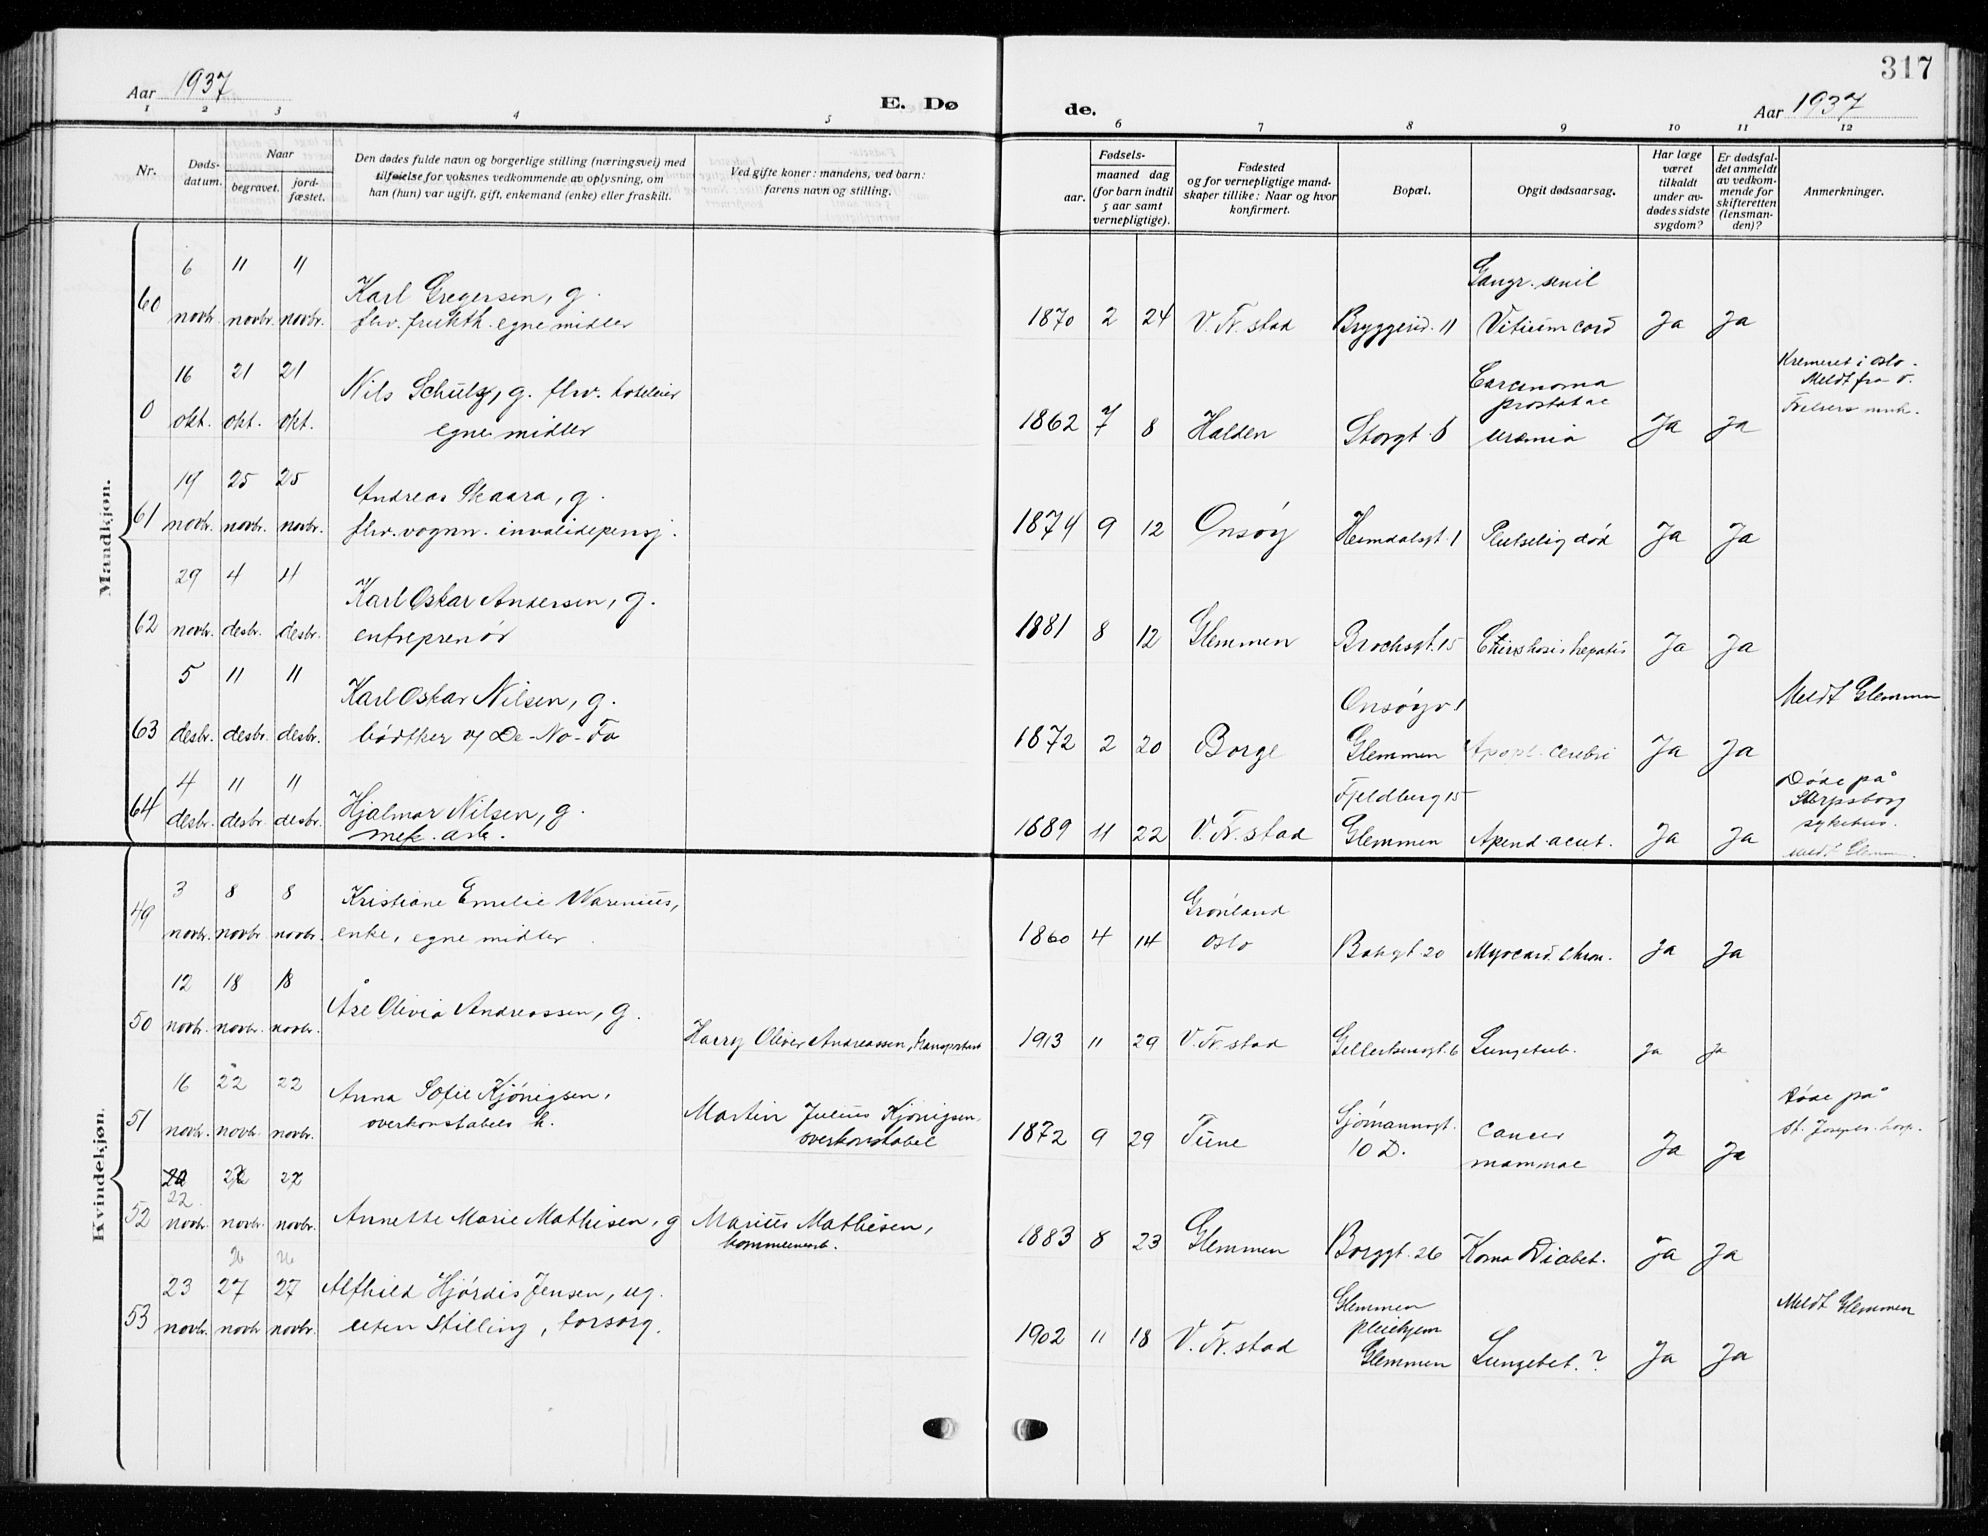 317
Aar 1937
E. Dø
de.
Aar 1937
1 2 3 4 5 6 7 8 9 10 11 12
Nr.
Døds-
datum.
Naar
begravet.
jord-
fæstet.
Den dødes fulde navn og borgerlige stilling (næringsvei) med
tilføielse for voksnes vedkommende av oplysning, om
han (hun) var ugift, gift, enkemand (enke) eller fraskilt.
Ved gifte koner: mandens, ved barn:
farens navn og stilling.
Fødsels-
aar.
maaned dag
(for barn indtil
5 aar samt
vernepligtige).
Fødested
og for vernepligtige mand-
skaper tillike: Naar og hvor
konfirmert.
Bopæl.
Opgit dødsaarsag.
Har læge
været
tilkaldt
under av-
dødes sidste
sygdom?
Er dødsfal-
det anmeldt
av vedkom-
mende for
skifteretten
(lensman-
den)?
Anmerkninger.
Maadkjøn.
6 11 11 Gangr. senil
60 novbr. novbr. novbr. Karl Gregersen, g.
flrv. frukth. egne midler 1870 2 24 V. Fr. stad Bryggerid. 11 Vitium cord Ja Ja
16 21 21 Carcinoma Kremeret i Oslo.
Nils Schulz, g. flrv. hoteleier prostatae Meldt fra
0 okt. okt. okt. egne midler 1862 7 8 Halden Storgt. 6 uremia Ja Ja Frelsers
19 25 25 Andreas Skaara, g.
61 novbr. novbr. novbr. flrv. vognm. invalidepensj. 1874 9 12 Onsøy Heimdalsgt. 1 Plutselig død Ja Ja
29 4 4 Karl Oskar Andersen, g.
62 novbr. desbr. desbr. entreprenør 1881 8 12 Glemmen Brochsgt. 15 hepatis Ja Ja
5 11 11 Karl Oskar Nilsen, g. Onsøyv. 1 Meldt Glemmen
63 desbr. desbr. desbr. bødtker v/ De-No-Fa 1872 2 20 Borge Glemmen Apopl. cerebri Ja Ja
4 11 11 Hjalmar Nilsen, g. Fjeldberg 15 Døde på
Sarpsborg
64 desbr. desbr. desbr. mek. arb. 1889 11 22 V. Fr. stad Glemmen Apend. acut. Ja Ja sykehus.
Meldt Glemm.
Kvindekjøn.
3 8 8 Kristiane Emelie Warenius, Grønland
49 novbr. novbr. novbr. enke, egne midler 1860 4 14 Oslo Bakgt. 20 Myocard. chron. Ja Ja
12 18 18 Åse Olivia Andreassen, g.
50 novbr. novbr. novbr. Harry Oliver Andreassen, 1913 11 29 V. Fr. stad Gellertsensgt. 6 Lungetub. Ja Ja
16 22 22 Anna Sofie Kjønigsen, Martin Julius Kjønigsen Sjømannsgt. cancer Døde på
51 novbr. novbr. novbr. overkonstabels h. overkonstabel 1872 9 29 Tune 10 D. mammae Ja Ja St. Josephs hosp.
22
22
52 novbr. novbr. novbr. Annette Marie Mathisen, g Marius Mathisen,
kommunearb. 1883 8 23 Glemmen Borggt. 26 Koma Diabet. Ja Ja
26 26
23 27 27 Alfhild Hjørdis Jensen, ug. Glemmen
pleiehjem Meldt Glemmen
53 novbr. novbr. novbr. uten stilling, forsorg. 1902 11 18 V. Fr. stad Glemmen Lungebet. ? Ja Ja